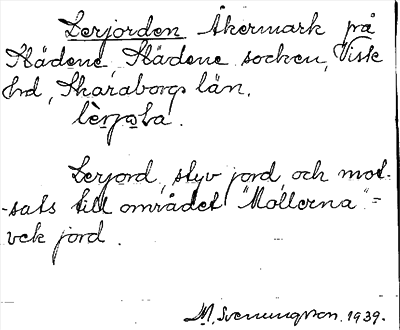 Lerjorden Åkermark på
Slädene, Slädene socken, Viste
hd, Skaraborgs län.
Lerjord, styv jord, och mot-
-sats till området "Mollerna" =
vek jord.
M. Svenungson. 1939.